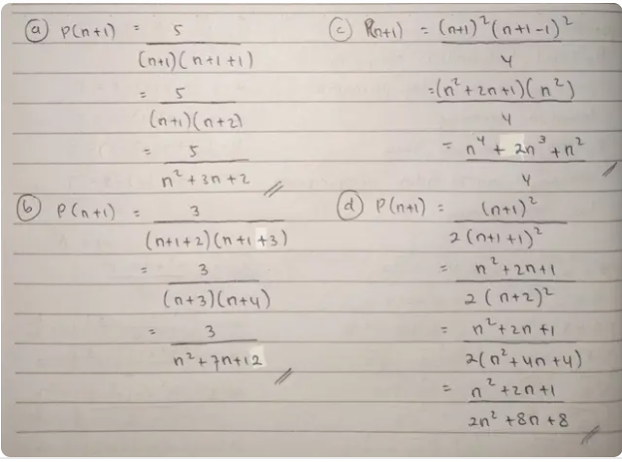 (a) P(n+1) = 5 / (n+1)(n+1+1)
= 5 / (n+1)(n+2)
= 5 / n² + 3n + 2 //
(b) P(n+1) = 3 / (n+1+2)(n+1+3)
= 3 / (n+3)(n+4)
= 3 / n² + 7n + 12 //
(c) P(n+1) = (n+1)² (n+1-1)² / 4
= (n² + 2n + 1)(n²) / 4
= n⁴ + 2n³ + n² / 4 //
(d) P(n+1) = (n+1)² / 2(n+1+1)²
= n² + 2n + 1 / 2(n+2)²
= n² + 2n + 1 / 2(n² + 4n + 4)
= n² + 2n + 1 / 2n² + 8n + 8 //